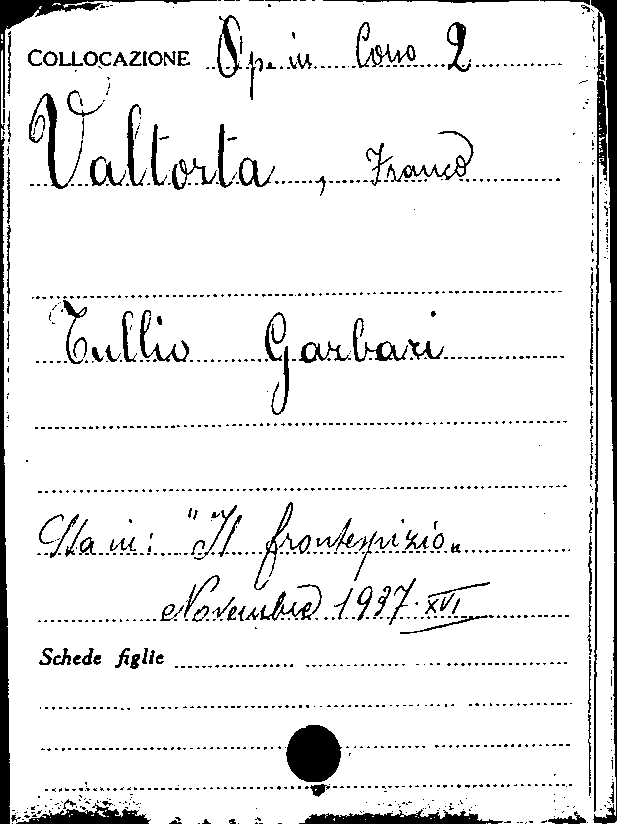 COLLOCAZIONE Op. in Corso 2
Valtorta, Franco
Tullio Garbari
Sta in: "Il frontespizio„
Novembre 1937·XVI
Schede figlie